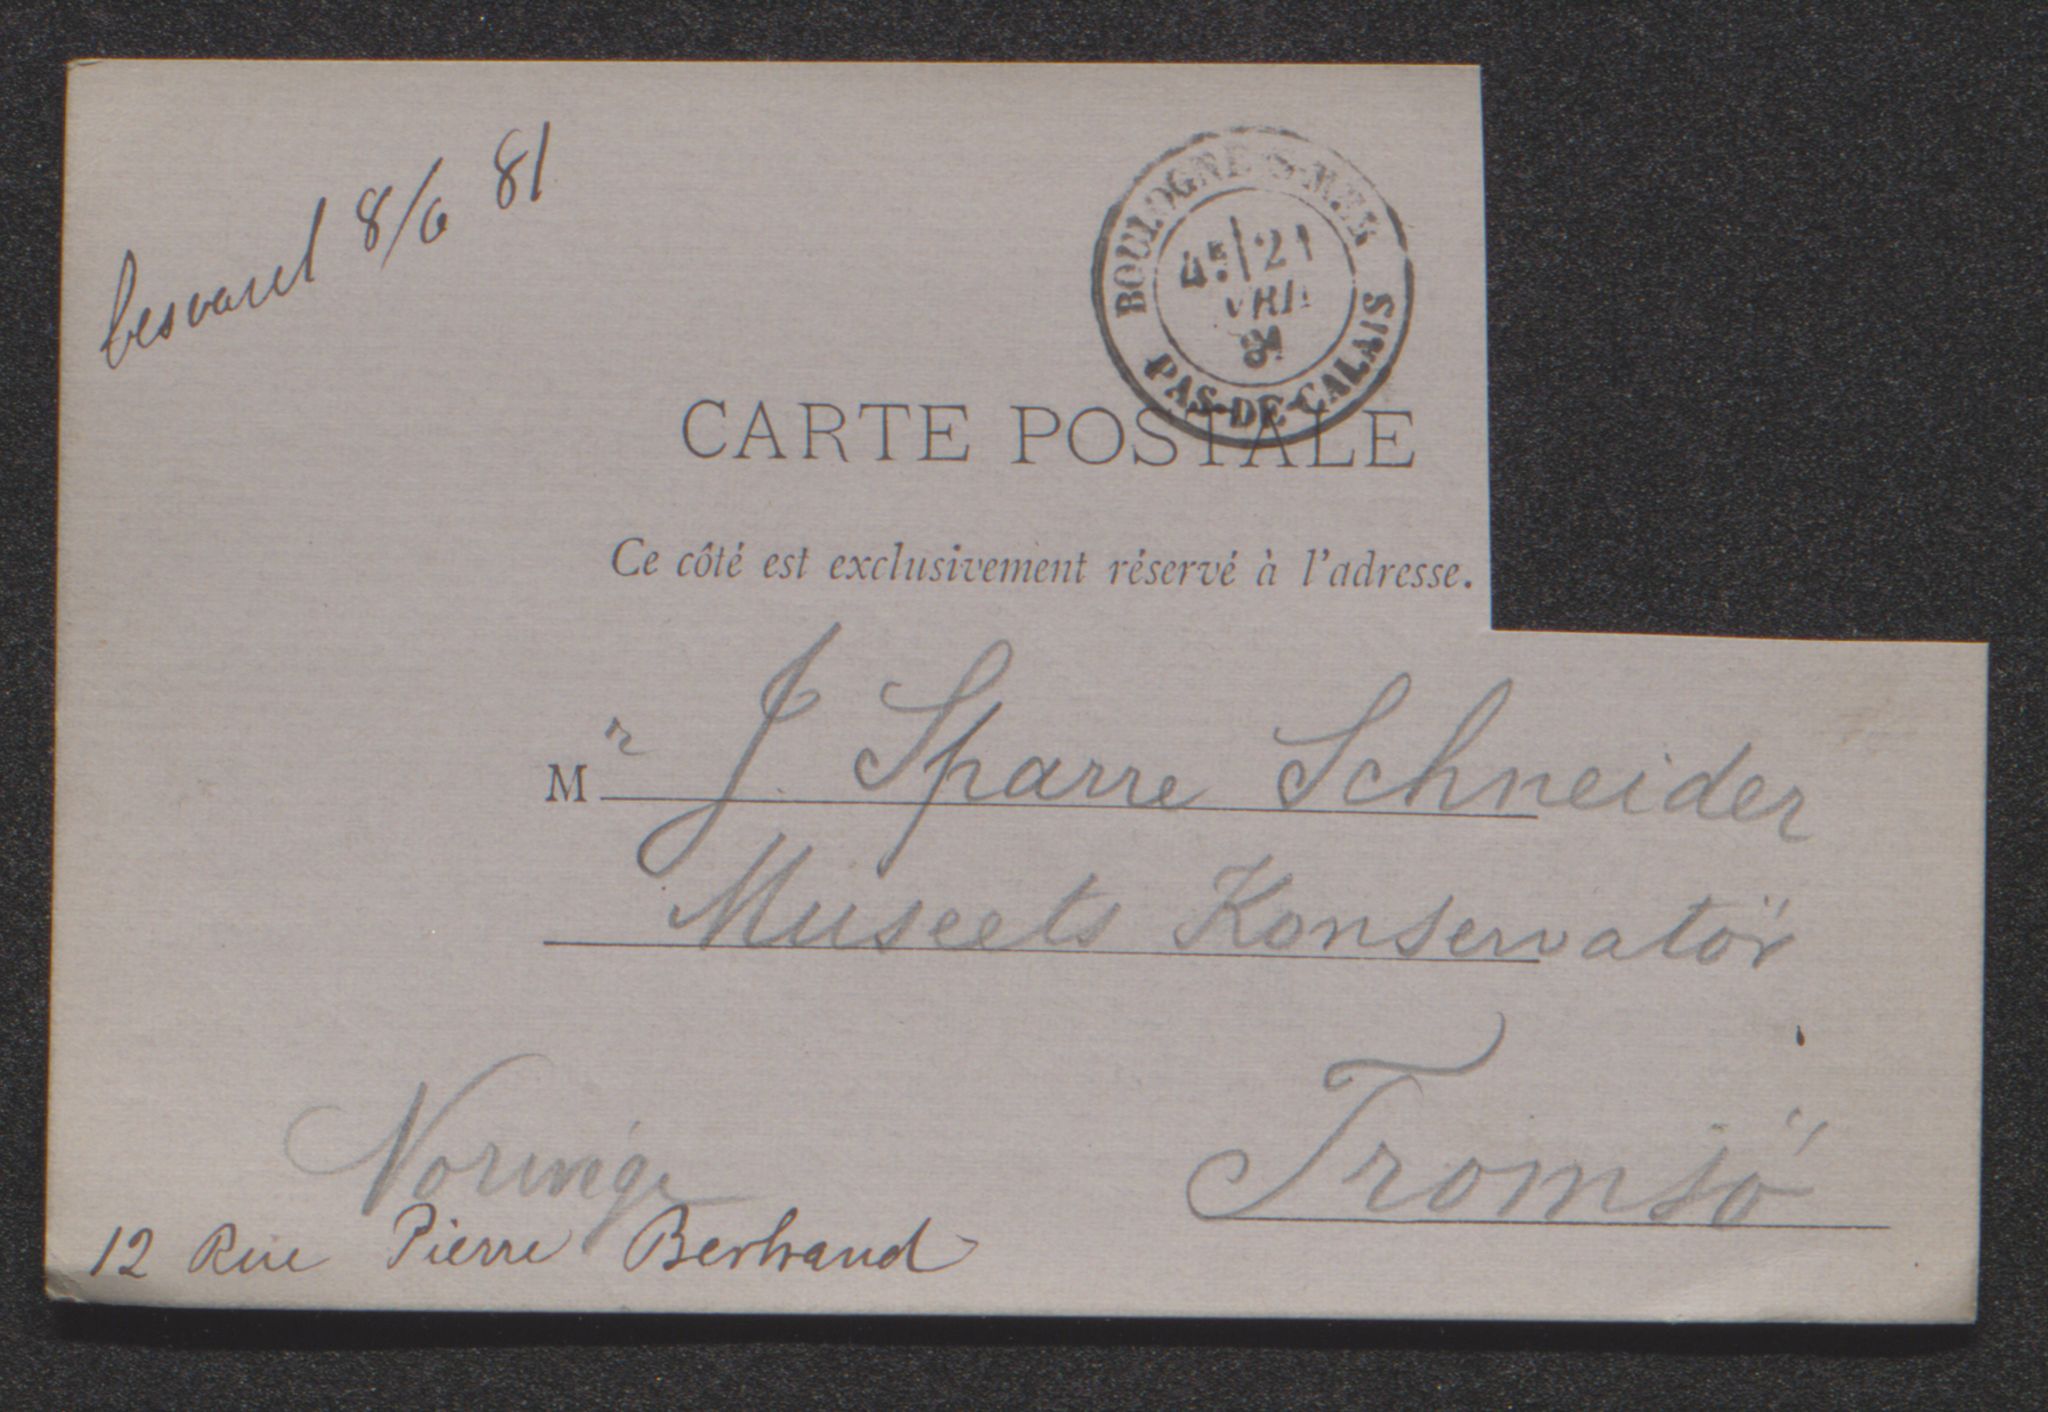 besvaret 8/6 81
BOULOGNE-S-MER
4E 21
AVRIL
81
PAS-DE-CALAIS
CARTE POSTALE
Ce côté est exclusivement réservé à l'adresse.
Mr J. Sparre Schneider
Museets Konservatör
Tromsö
Norvége
12 Rue Pierre Bertrand